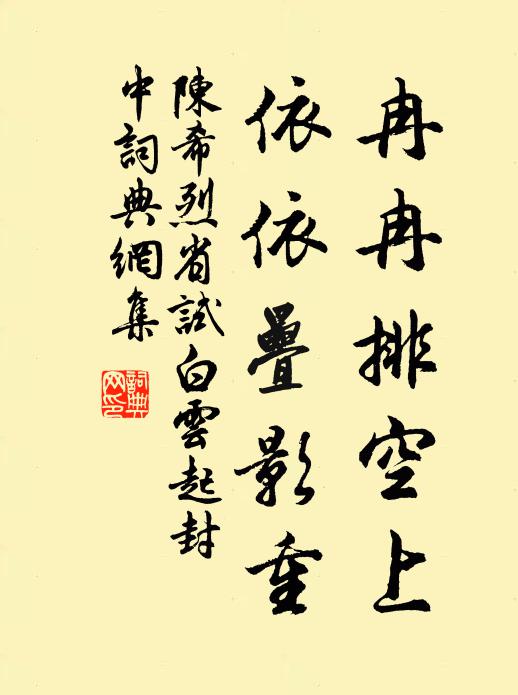 冉冉排空上
依依疊影重
陳希烈省試白雲起封
中詞典網集
詞典网印